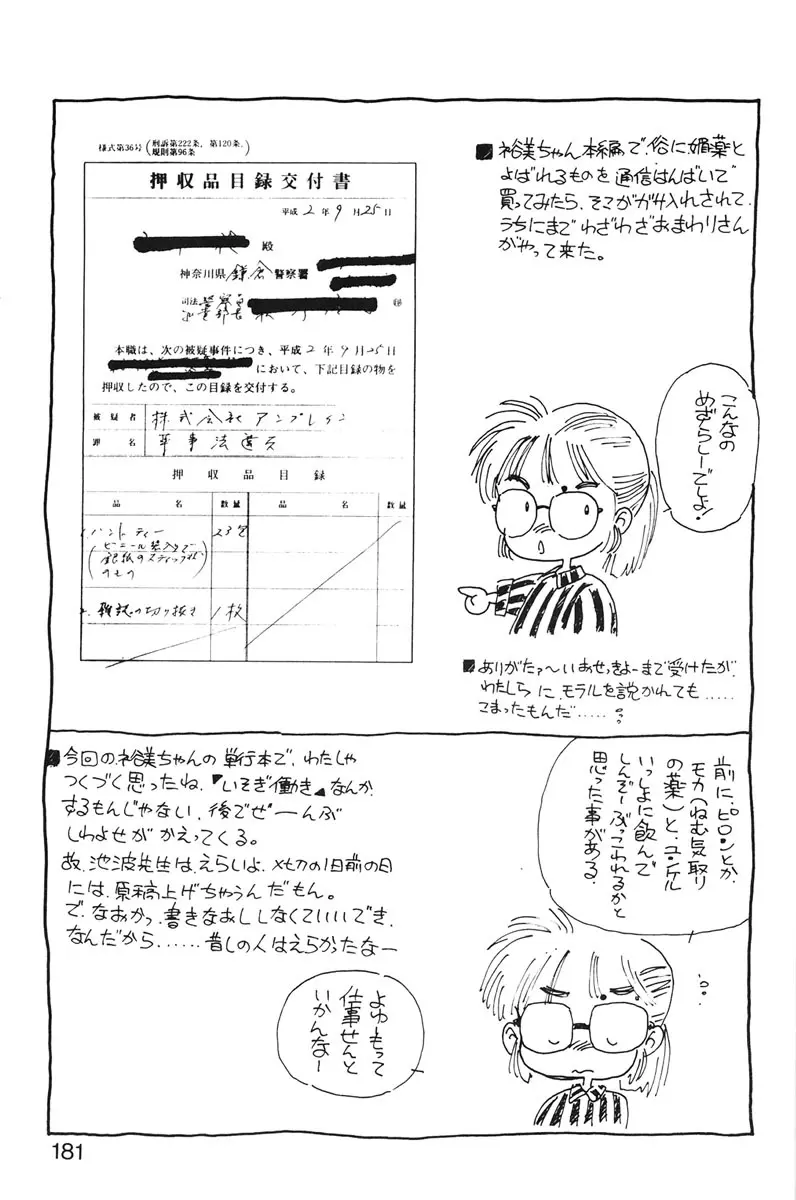 ■裕美ちゃん本編で、俗に媚薬と
よばれるものを通信はんばいで
買ってみたら、そこがガサ入れされて、
うちにまでわざわざおまわりさん
がやって来た。
様式第36号(刑訴第222条、第120条、
規則第96条)
押収品目録交付書
平成2年9月25日
殿
神奈川県鎌倉警察署
司法警察員
本職は、次の被疑事件につき、平成2年9月25日
において、下記目録の物を
押収したので、この目録を交付する。
被疑者 株式会社アンブレイン
罪名 薬事法違反
押収品目録
品名 数量 品名 数量
1. ハントティー 23包
(ビニール袋入りで
銀紙のスティック状
のもの)
2. 雑誌の切り抜き 1枚
こんなの
めずらしーでしょ!
■ありがたァ〜いおせっきょーまで受けたが、
わたしらにモラルを説かれても......
こまったもんだ......
前に、ピロンとか
モカ(ねむ気取り
の薬)と、ユンケル
いっしょに飲んで
しんぞーぶっこわれるかと
思った事がある。
■今回の裕美ちゃんの単行本で、わたしゃ
つくづく思ったね、『いそぎ働き』なんか
するもんじゃない、後でぜーんぶ
しわよせがかえってくる。
故、池波先生は、えらいよ、〆切の1日前の日
には、原稿上げちゃうんだもん。
で、なおかつ、書きなおししなくていいでき、
なんだから......昔しの人はえらかったなー
よゆーもって
仕事せんと
いかんなー
181